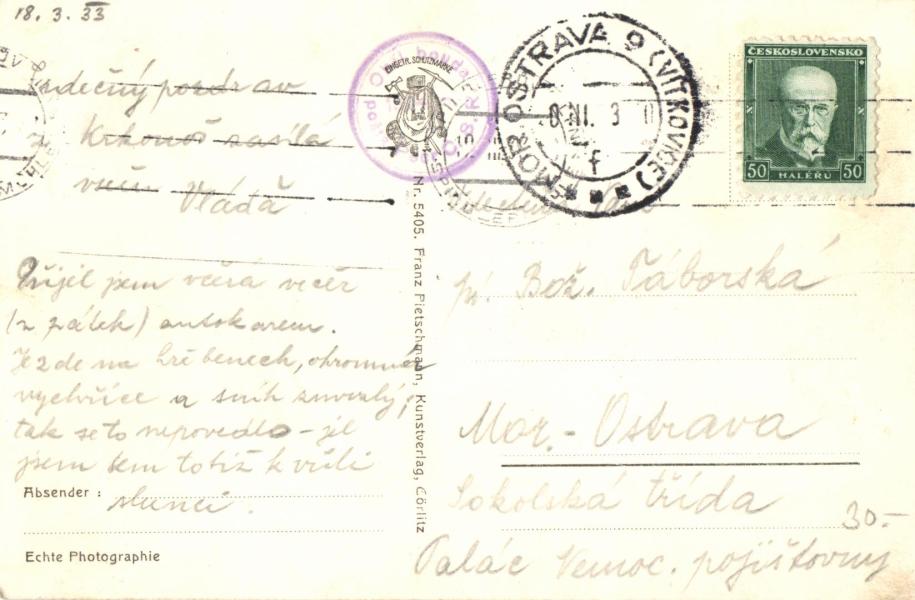 18. 3. 33
Srdečný pozdrav
z Krkonoš zasílá
všem
Vláďa
Přijel jsem včera večer
(z zálek) autokarem.
Je zde na hřebenech, ohromná
vychřice a sníh zmrzlý,
tak se to nepovedlo - jel
jsem sem totiž kvůli
slunci.
Absender :
Echte Photographie
EINGETR. SCHUTZMARKE
Nr. 5405. Franz Pietschmann, Kunstverlag, Görlitz
MOR. OSTRAVA 9 (VÍTKOVICE)
f
ČESKOSLOVENSKO
50 HALÉŘŮ 50
Bož. Táborská
Mor. - Ostrava
Sokolská třída
30.-
Palác Nemoc. pojišťovny